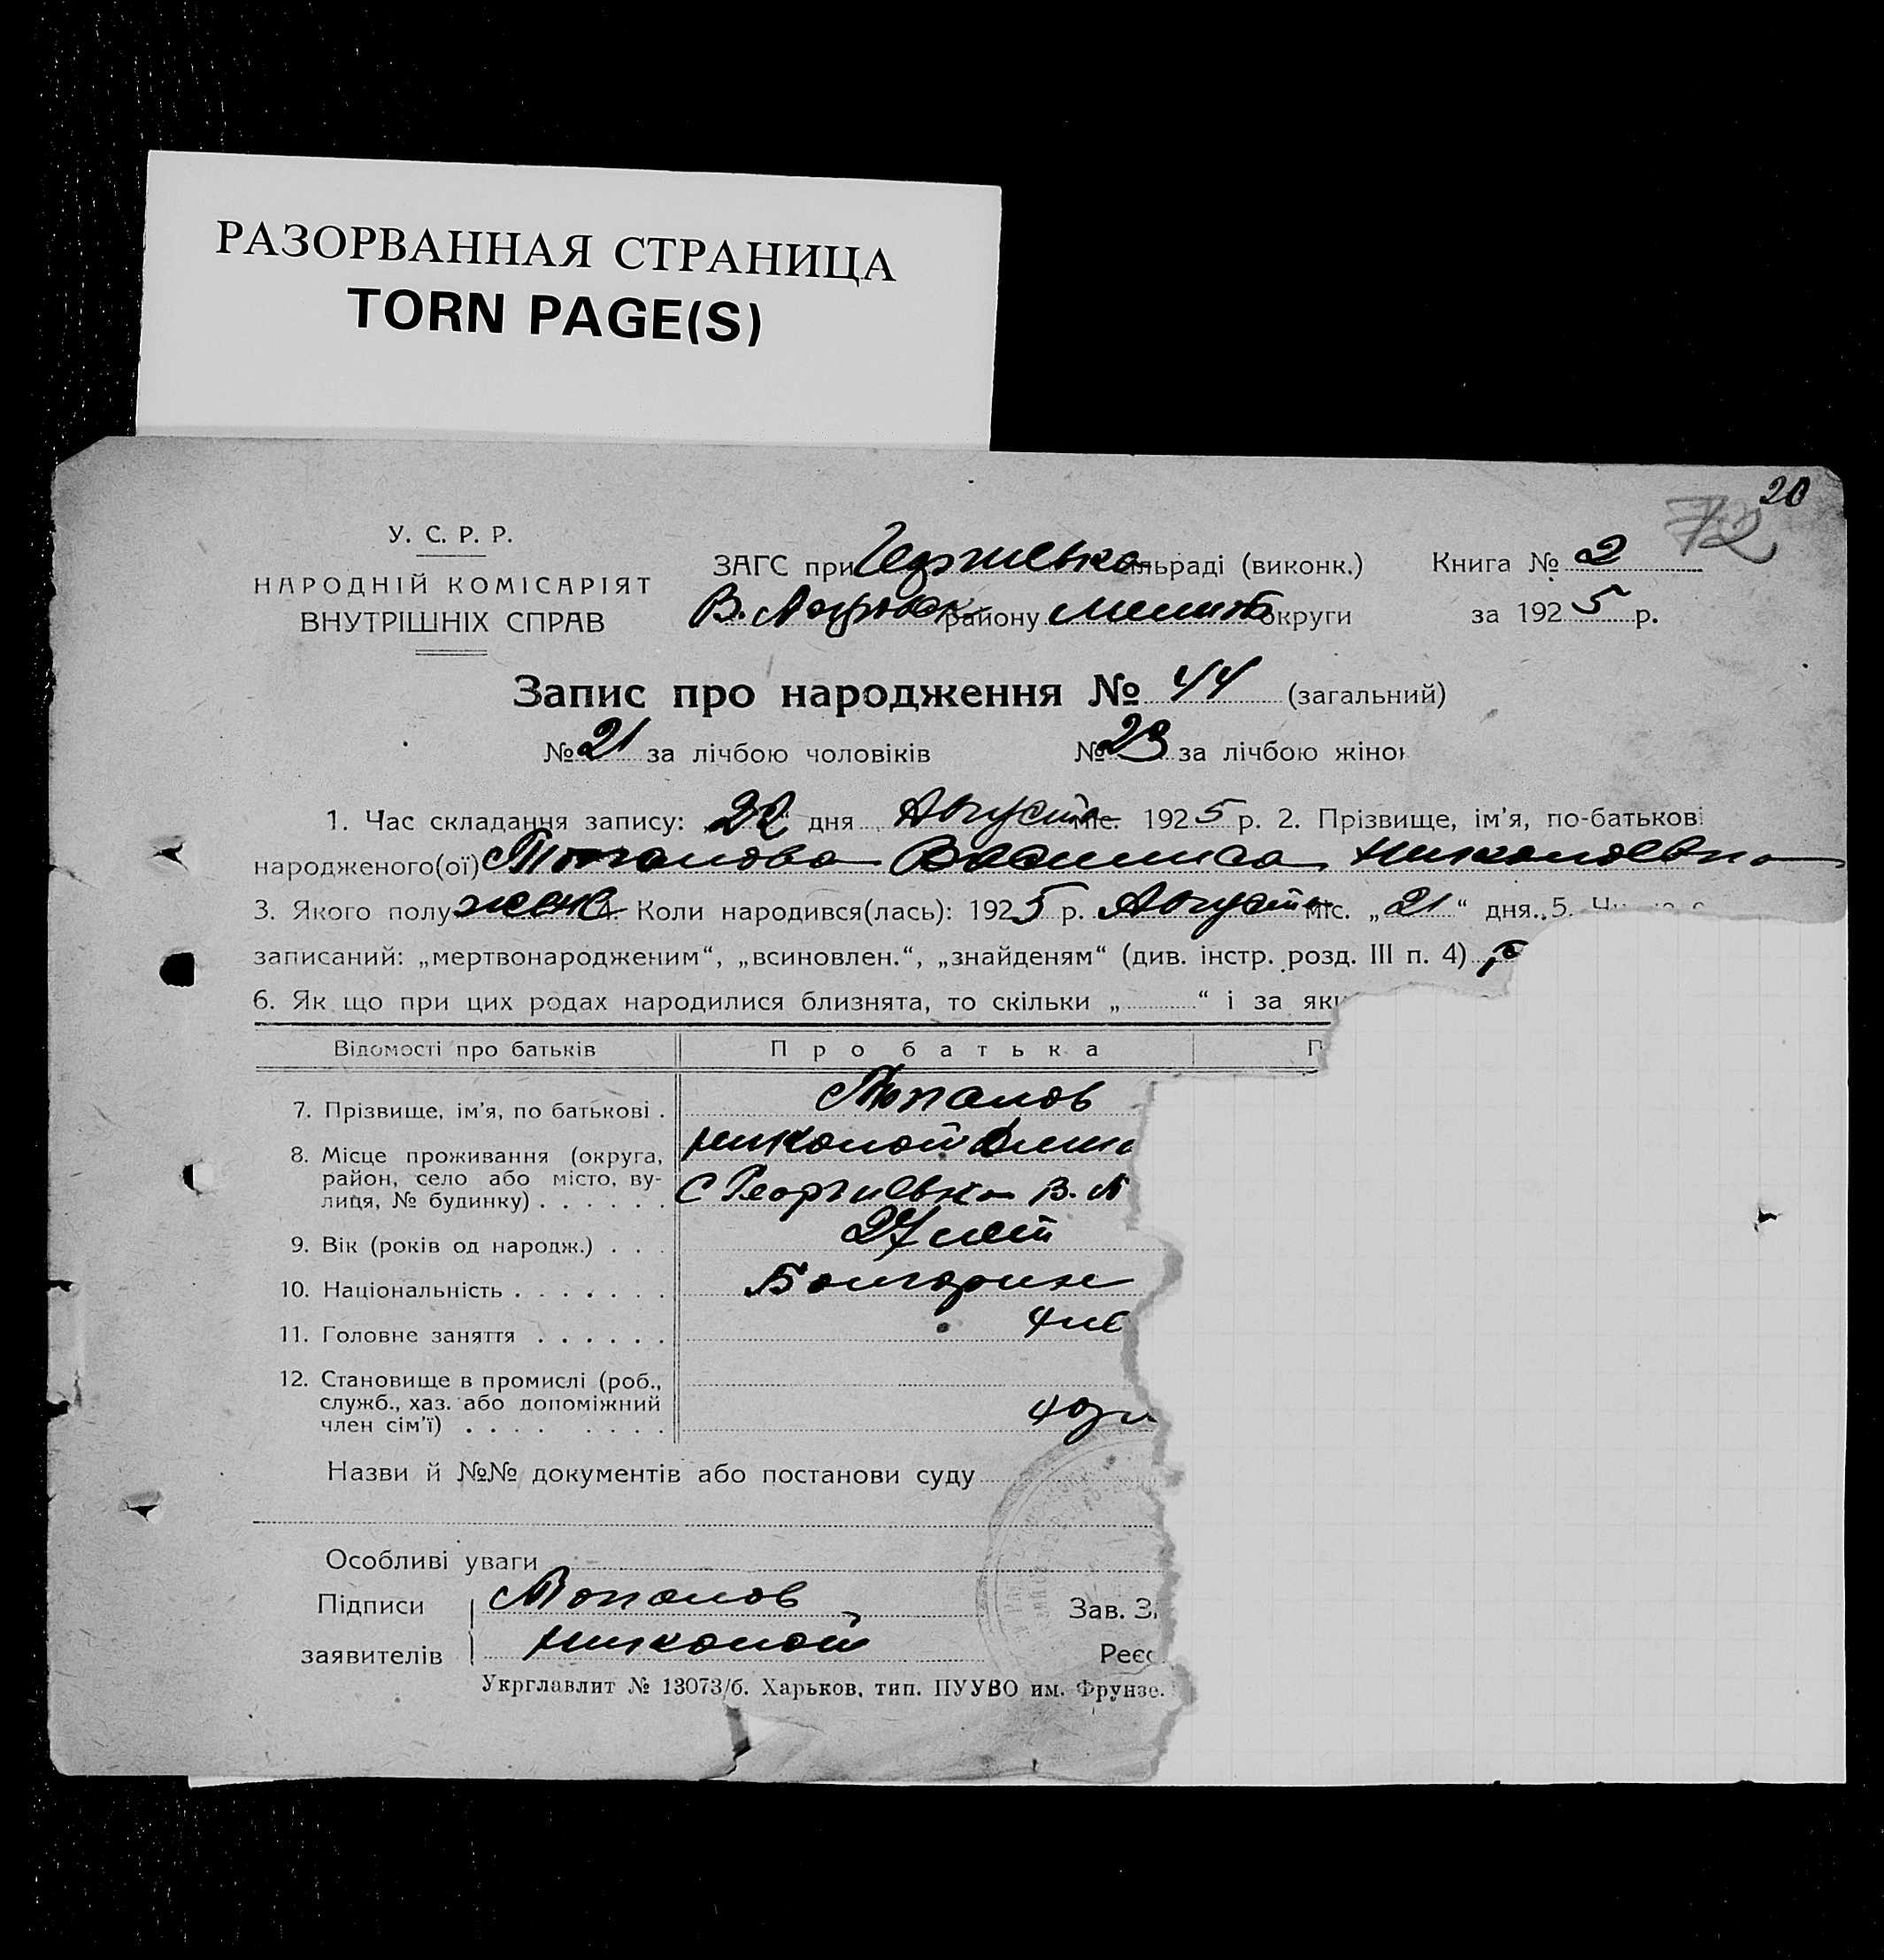 РАЗОРВАННАЯ СТРАНИЦА
TORN PAGE(S)
20
72
У. С. Р. Р.
НАРОДНІЙ КОМІСАРІЯТ
ВНУТРІШНІХ СПРАВ
ЗАГС при сільраді (виконк.) Книга № 2
району Мелит округи за 1925 р.
Запис про народження № 44 (загальний)
№ 21 за лічбою чоловіків № 23 за лічбою жінок
1. Час складання запису: 22 дня Августа міс. 1925 р. 2. Прізвище, ім'я, по-батькові
народженого(ої) Топалова Василиса Николаевна
3. Якого полу жен 4. Коли народився(лась): 1925 р. Августа міс. „21" дня. 5.
записаний: „мертвонародженим", „всиновлен.", „знайденям" (див. інстр. розд. III п. 4)
6. Як що при цих родах народилися близнята, то скільки „ " і за яки
Відомості про батьків Про батька П
7. Прізвище, ім'я, по батькові . Топалов
Николай
8. Місце проживання (округа,
район, село або місто, ву-
лиця, № будинку) . . . . . . С Георгиевка В. А
9. Вік (років од народж.) . . . 27 лет
10. Національність . . . . . . . Болгарин
11. Головне заняття . . . . . .
12. Становище в промислі (роб.,
служб., хаз. або допоміжний
член сім'ї) . . . . . . . .
Назви й №№ документів або постанови суду
Особливі уваги
Підписи Топалов Зав. З
заявителів Николай Реєс
Укрглавлит № 13073/б. Харьков, тип. ПУУВО им. Фрунзе.